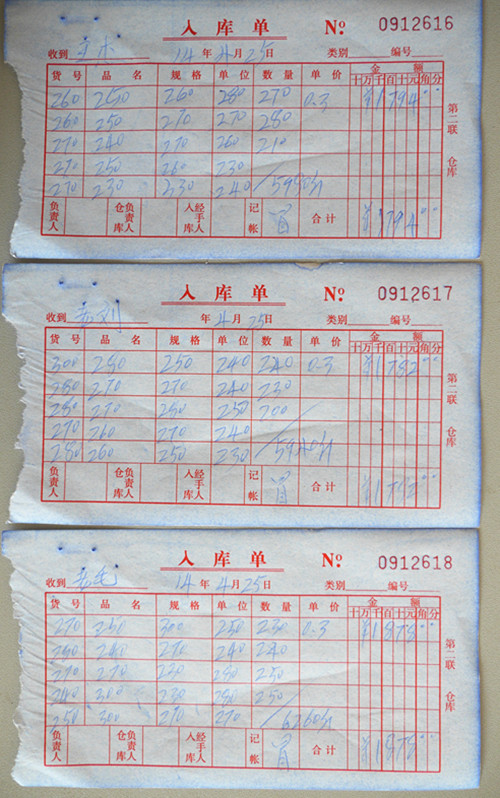 入库单 № 0912616
收到 王木 14年4月25日 类别 编号
货号 品名 规格 单位 数量 单价 金额
十万千百十元角分
260 250 260 280 270 0.3 ¥1794 00
260 250 270 270 280
270 240 270 260 210
270 250 260 230
270 230 230 240 / 5980斤
负责人 仓库负责人 经手人入库 记帐 合计 ¥1794 00
第二联 仓库
入库单 № 0912617
收到 年4月25日 类别 编号
货号 品名 规格 单位 数量 单价 金额
十万千百十元角分
300 250 250 240 240 0.3 ¥1782 00
280 270 270 240 230
280 270 250 250 200
270 260 270 240
280 260 250 230 / 5940斤
负责人 仓库负责人 经手人入库 记帐 合计 ¥1782 00
第二联 仓库
入库单 № 0912618
收到 14年4月25日 类别 编号
货号 品名 规格 单位 数量 单价 金额
十万千百十元角分
270 250 300 250 230 0.3 ¥1878 00
260 270 240 240
270 270 220 280 250
240 300 230 280 250
250 300 270 270 / 6260斤
负责人 仓库负责人 经手人入库 记帐 合计 ¥1878 00
第二联 仓库